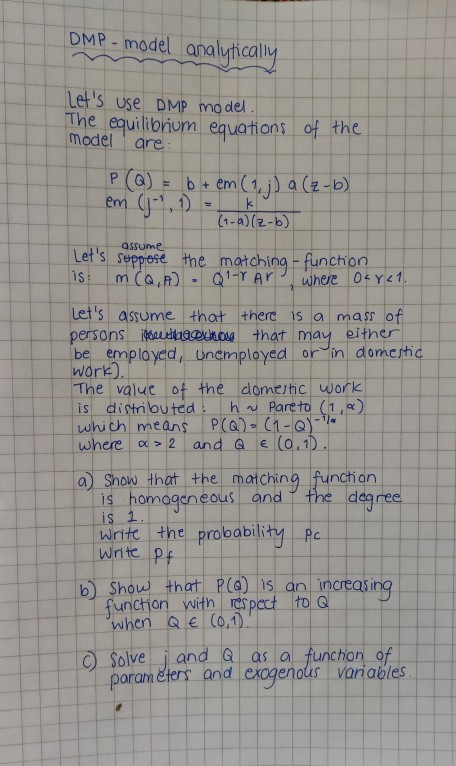 DMP - model analytically
Let's use DMP model.
The equilibrium equations of the
model are:
P(Q) = b + em(1,j) a (z-b)
em (j⁻¹, 1) = k / (1-a)(z-b)
assume
Let's suppose the matching-function
is: m(Q,A) = Q¹⁻ʳ Aʳ, where 0<r<1.
Let's assume that there is a mass of
persons that may either
be employed, unemployed or in domestic
work).
The value of the domestic work
is distributed: h ~ Pareto (1,α)
which means P(Q) = (1-Q)^-1/α
where α > 2 and Q ∈ (0,1).
a) Show that the matching function
is homogeneous and the degree
is 1.
Write the probability Pc
Write Pf
b) Show that P(Q) is an increasing
function with respect to Q
when Q ∈ (0,1).
c) Solve j and Q as a function of
parameters and exogenous variables.